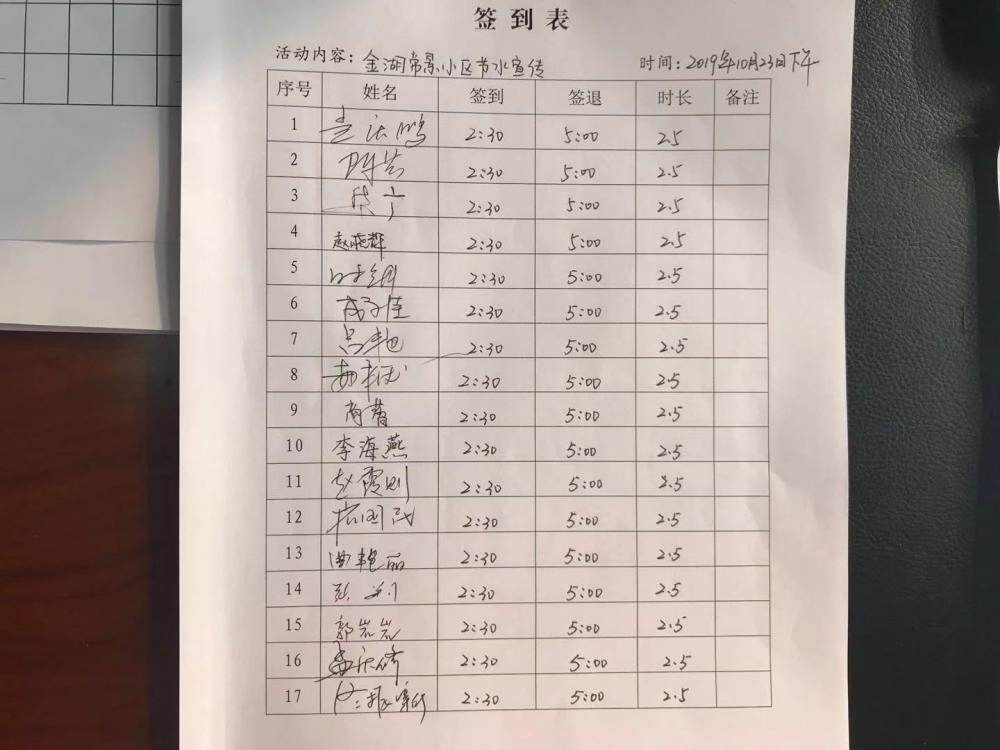 签到表
活动内容：金湖帝景小区节水宣传 时间：2019年10月23日下午
序号 姓名 签到 签退 时长 备注
1 2:30 5:00 2.5
2 2:30 5:00 2.5
3 2:30 5:00 2.5
4 赵晓辉 2:30 5:00 2.5
5 2:30 5:00 2.5
6 2:30 5:00 2.5
7 吕艳 2:30 5:00 2.5
8 2:30 5:00 2.5
9 尚蕾 2:30 5:00 2.5
10 李海燕 2:30 5:00 2.5
11 赵霞 2:30 5:00 2.5
12 2:30 5:00 2.5
13 曲艳丽 2:30 5:00 2.5
14 2:30 5:00 2.5
15 郭岩岩 2:30 5:00 2.5
16 2:30 5:00 2.5
17 2:30 5:00 2.5